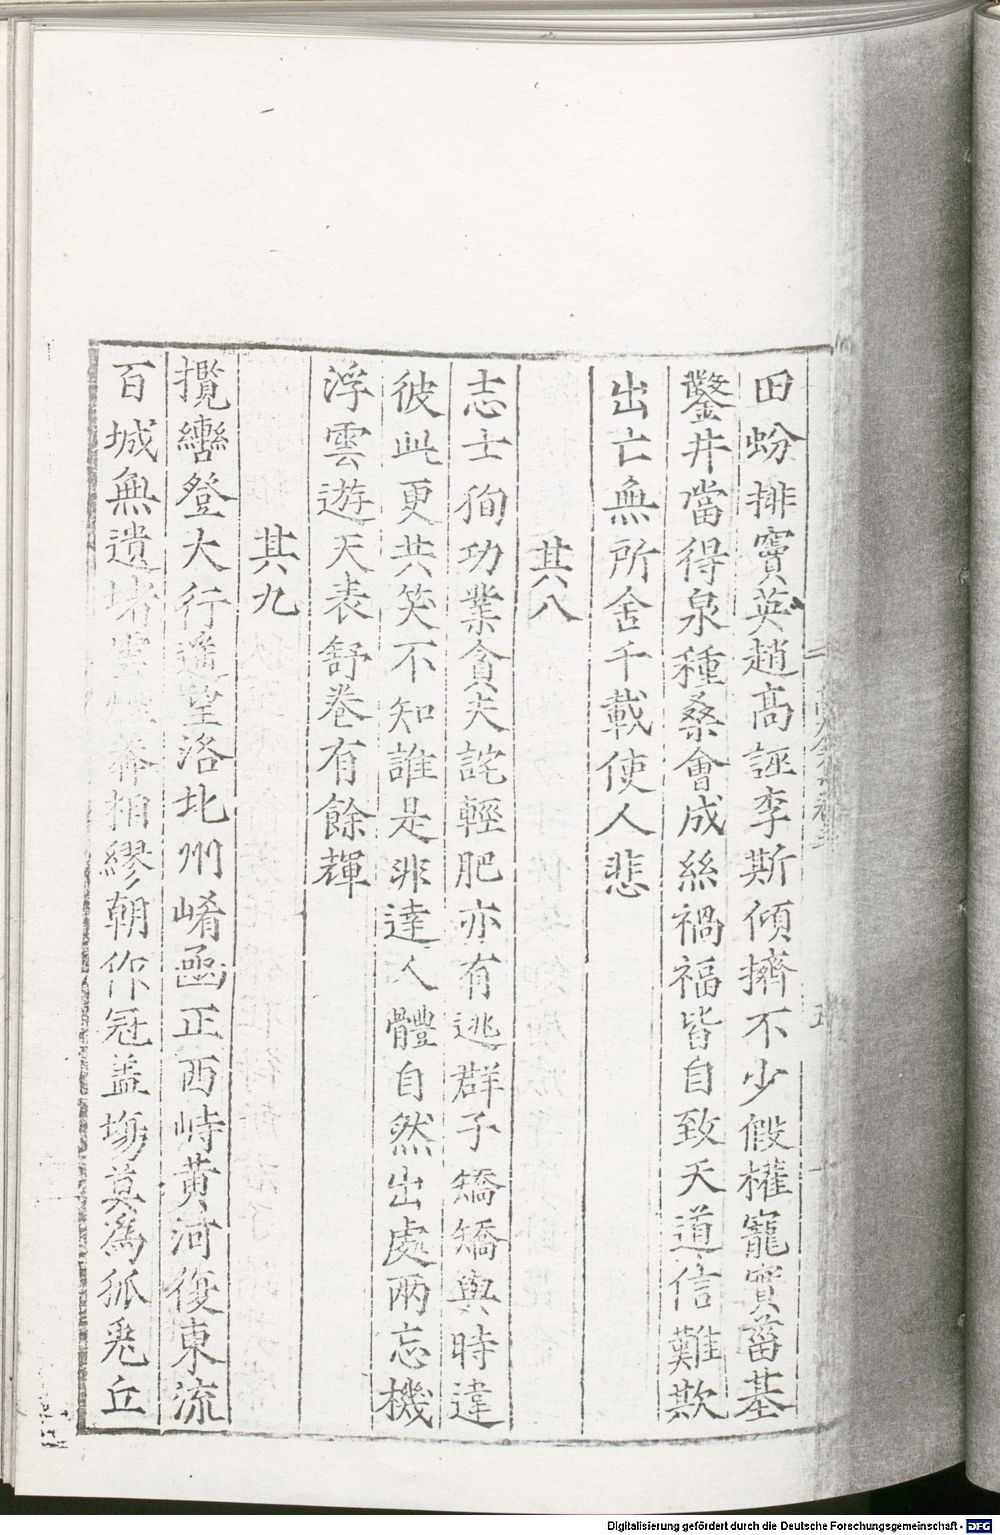 田蚡排竇英趙高誣李斯傾擠不少假權寵實菑基
鑿井當得泉種桑會成絲禍福皆自致天道信難欺
出亡無所舍千載使人悲
其八
志士徇功業貪夫詫輕肥亦有逃群子矯矯與時違
彼此更共笑不知誰是非達人體自然出處兩忘機
浮雲遊天表舒卷有餘輝
其九
攬轡登大行遥望洛北州崤函正西峙黄河復東流
百城無遺堵雲松柏繆朝作冠盖塲莫為狐兎丘
Digitalisierung gefördert durch die Deutsche Forschungsgemeinschaft - DFG